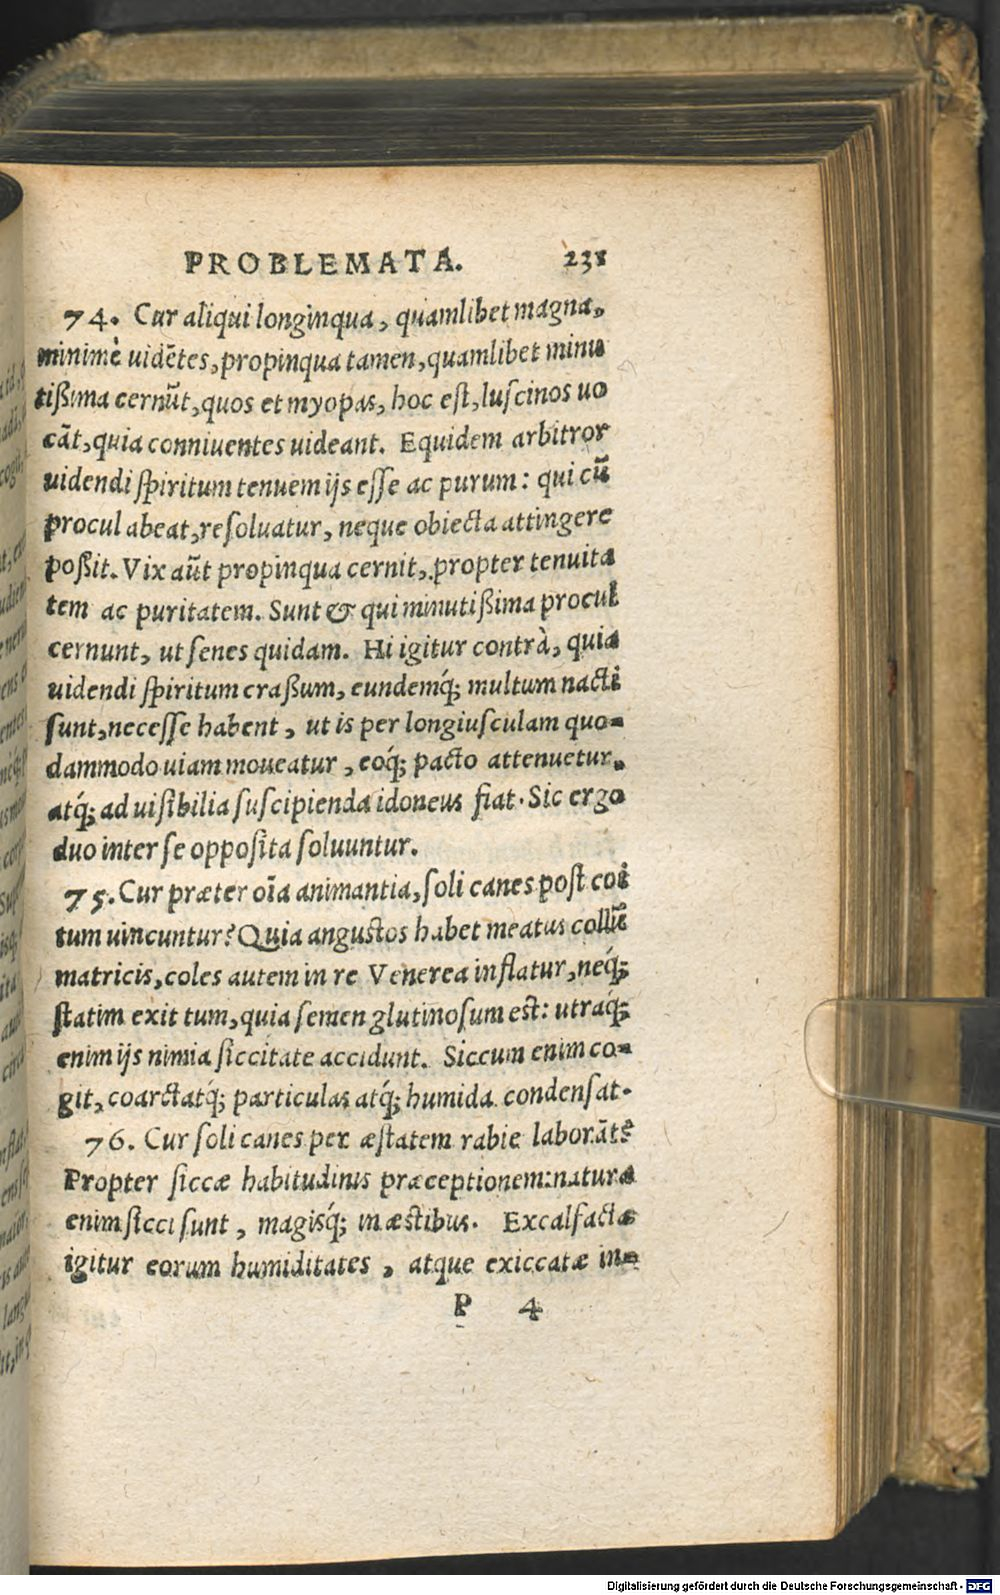 PROBLEMATA. 231
74. Cur aliqui longinqua, quamlibet magna,
minimè uidētes, propinqua tamen, quamlibet minu
tißima cernūt, quos et myopas, hoc est, luscinos uo
cāt, quia conniuentes uideant. Equidem arbitror
uidendi spiritum tenuem ijs esse ac purum: qui cū
procul abeat, resoluatur, neque obiecta attingere
poßit. Vix aūt propinqua cernit, propter tenuita
tem ac puritatem. Sunt & qui minutißima procul
cernunt, ut senes quidam. Hi igitur contrà, quia
uidendi spiritum craßum, eundemq́; multum nacti
sunt, necesse habent, ut is per longiusculam quo-
dammodo uiam moueatur, eoq́; pacto attenuetur,
atq́; ad uisibilia suscipienda idoneus fiat. Sic ergo
duo inter se opposita soluuntur.
75. Cur præter oīa animantia, soli canes post coi
tum uincuntur? Quia angustos habet meatus collū
matricis, coles autem in re Venerea inflatur, neq́;
statim exit tum, quia semen glutinosum est: utraq́;
enim ijs nimia siccitate accidunt. Siccum enim co-
git, coarctatq́; particulas atq́; humida condensat.
76. Cur soli canes per æstatem rabie laborāt?
Propter siccæ habitudinis præceptionem: natura
enim sicci sunt, magisq́; in æstibus. Excalfactæ
igitur eorum humiditates, atque exiccatæ in-
P 4
Digitalisierung gefördert durch die Deutsche Forschungsgemeinschaft - DFG